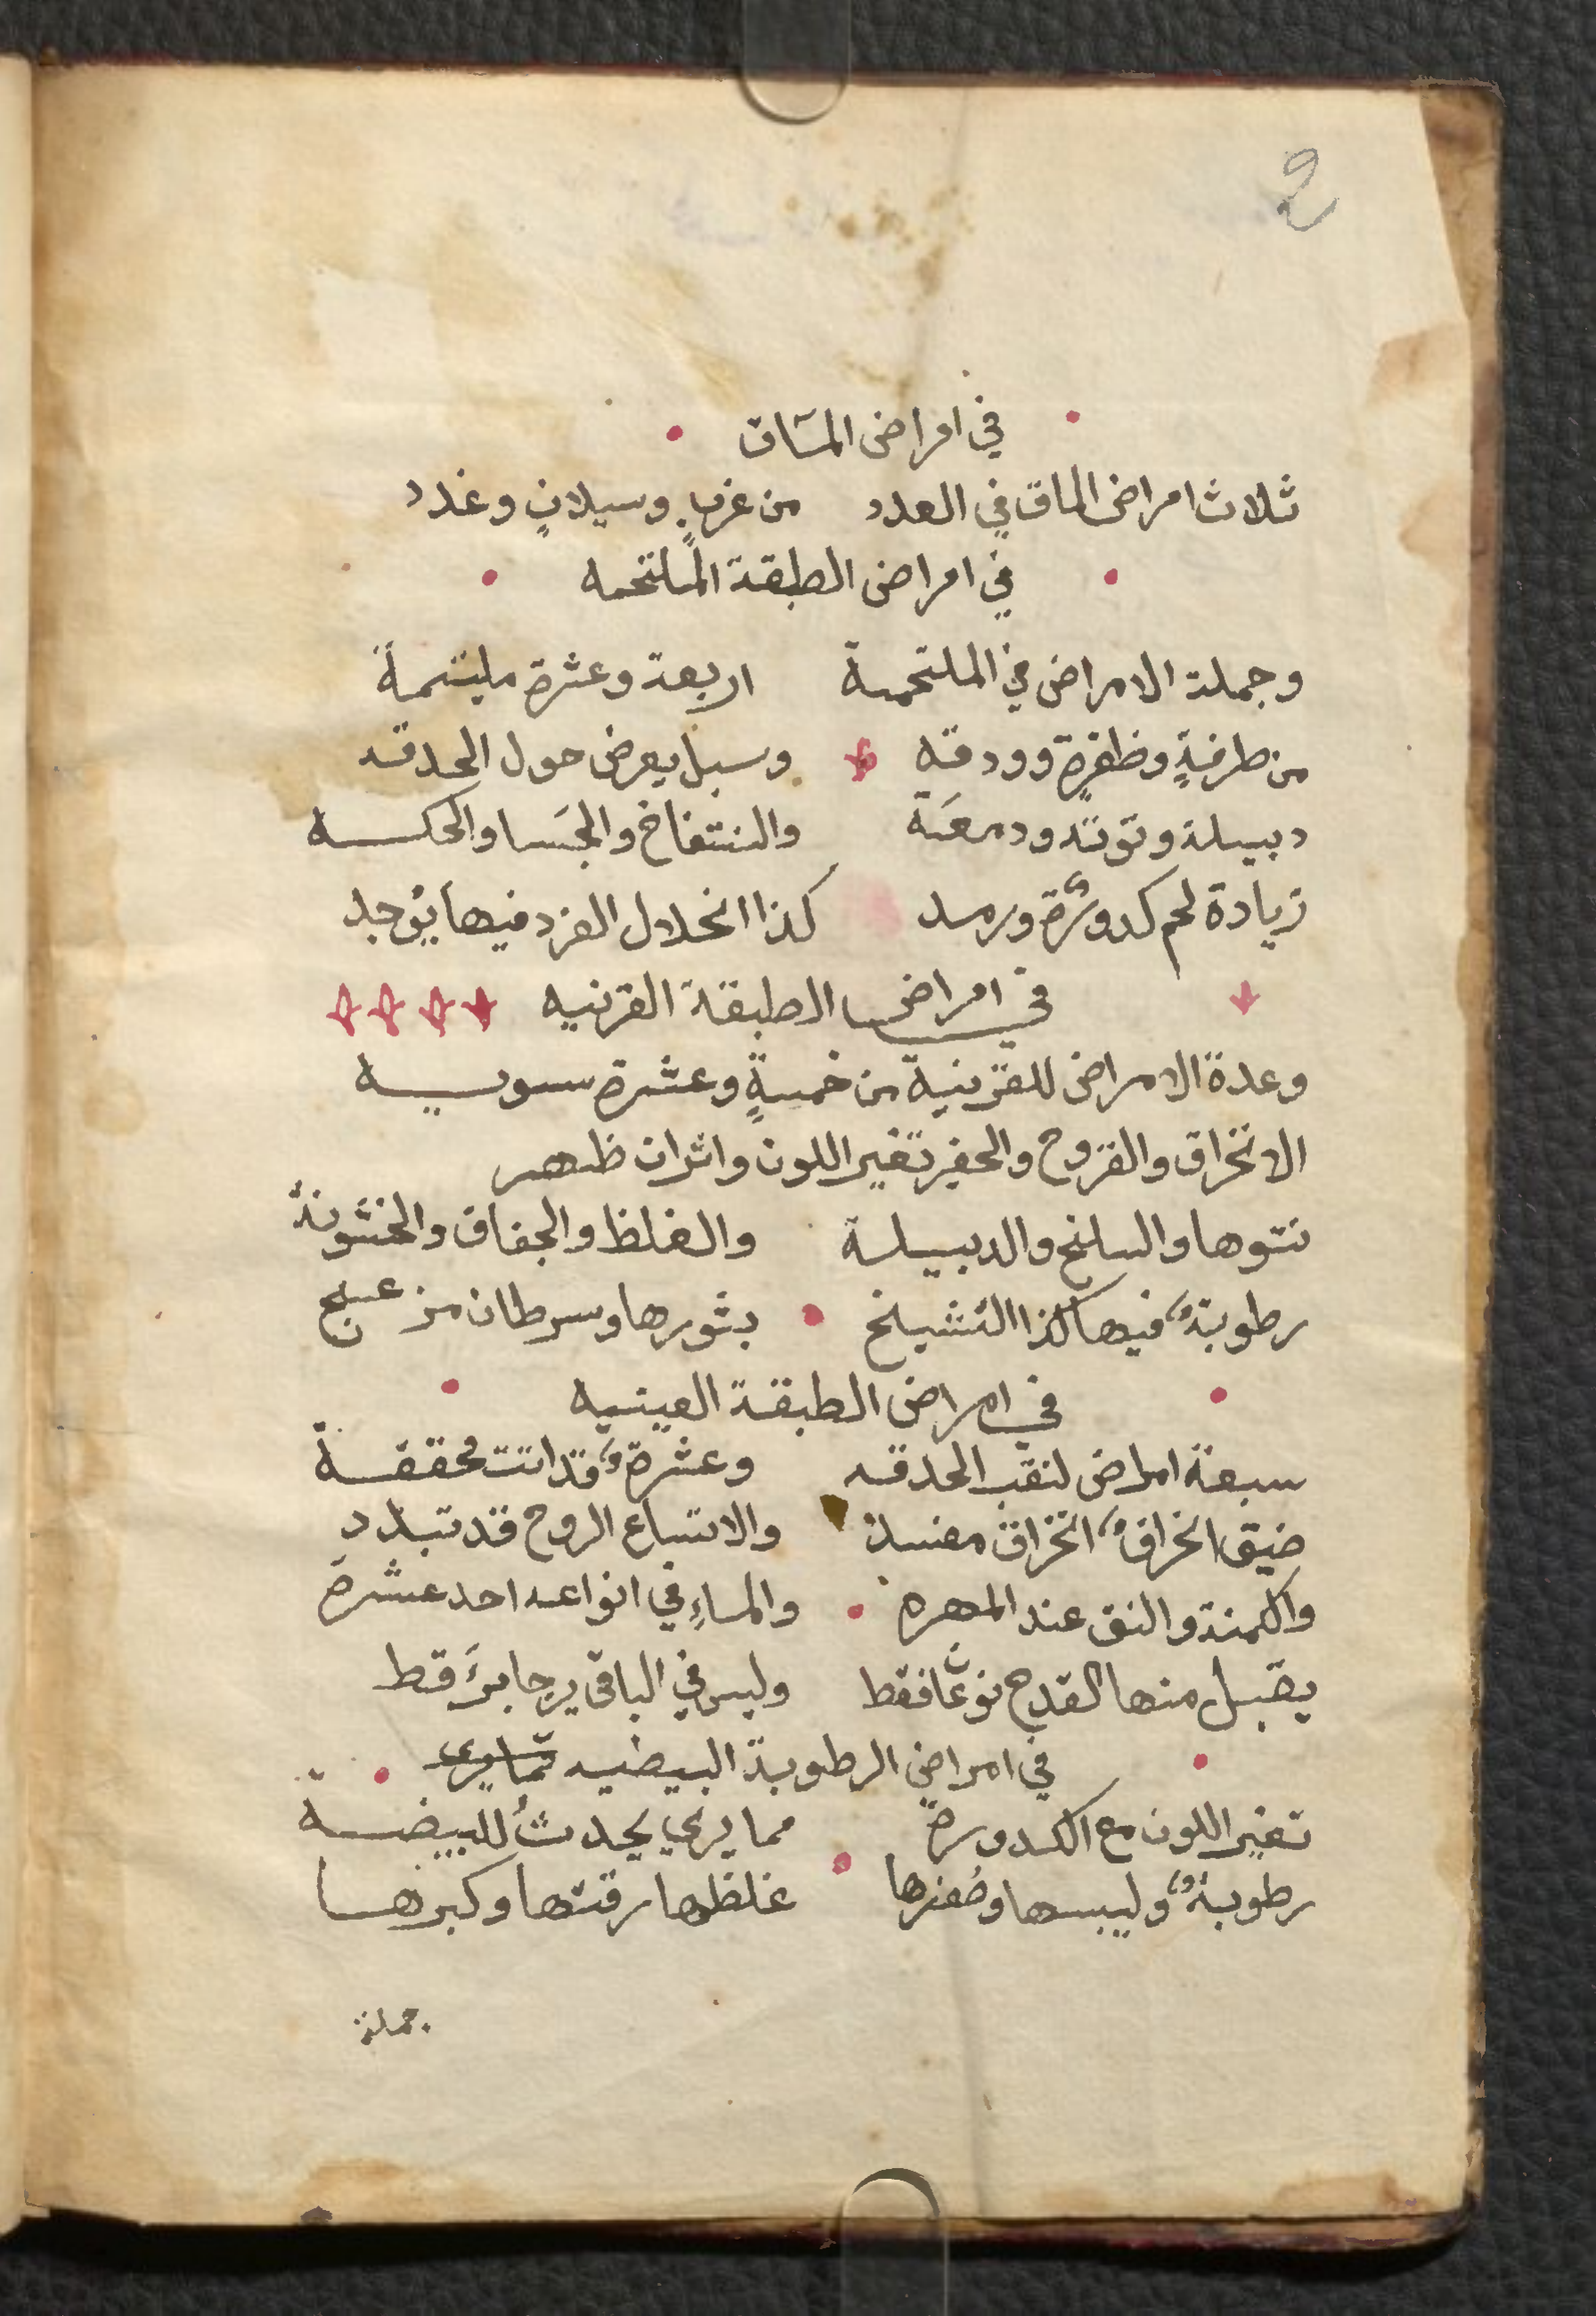 2
في امراض المآق
ثلاث امراض الماق في العدد من غربٍ وسيلانٍ وغدد
في امراض الطبقة الملتحمه
وجملة الامراض في الملتحمة اربعة وعشرة ملتئمة
من طرفةٍ وظفرةٍ وودقه وسبل يعرض حول الحدقه
دبيلة وتوتة ودمعة والنتفاخ والجسا والحكه
زيادة لحم كدورة ورمد كذا انحلال الفرد فيها يوجد
في امراض الطبقة القرنيه
وعدة الامراض للقرنية من خمسةٍ وعشرة سويه
الانخراق والقروح والحفر تغير اللون واثران ظهر
نتوها والسلخ والدبيلة والغلظ والجفاف والخشونة
رطوبة فيها كذا التشيخ بثورها وسرطان من
في امراض الطبقة العينيه
سبعة امراض لنقب الحدقه وعشرة قد اتت محققة
ضيق انخراق انخراق مفسد والاتساع الروح قد تبدد
والكمنة والنتو عند المهره والماءِ في انواعه احد عشرة
يقبل منها القدح نوعًا فقط وليس في الباقي يرجا برءَ قط
في امراض الرطوبة البيضيه
تغير اللون مع الكدورة مما يري يحدثُ للبيضة
رطوبة وليبسها وصُغرها غلظها رقتها وكبرها
جملة